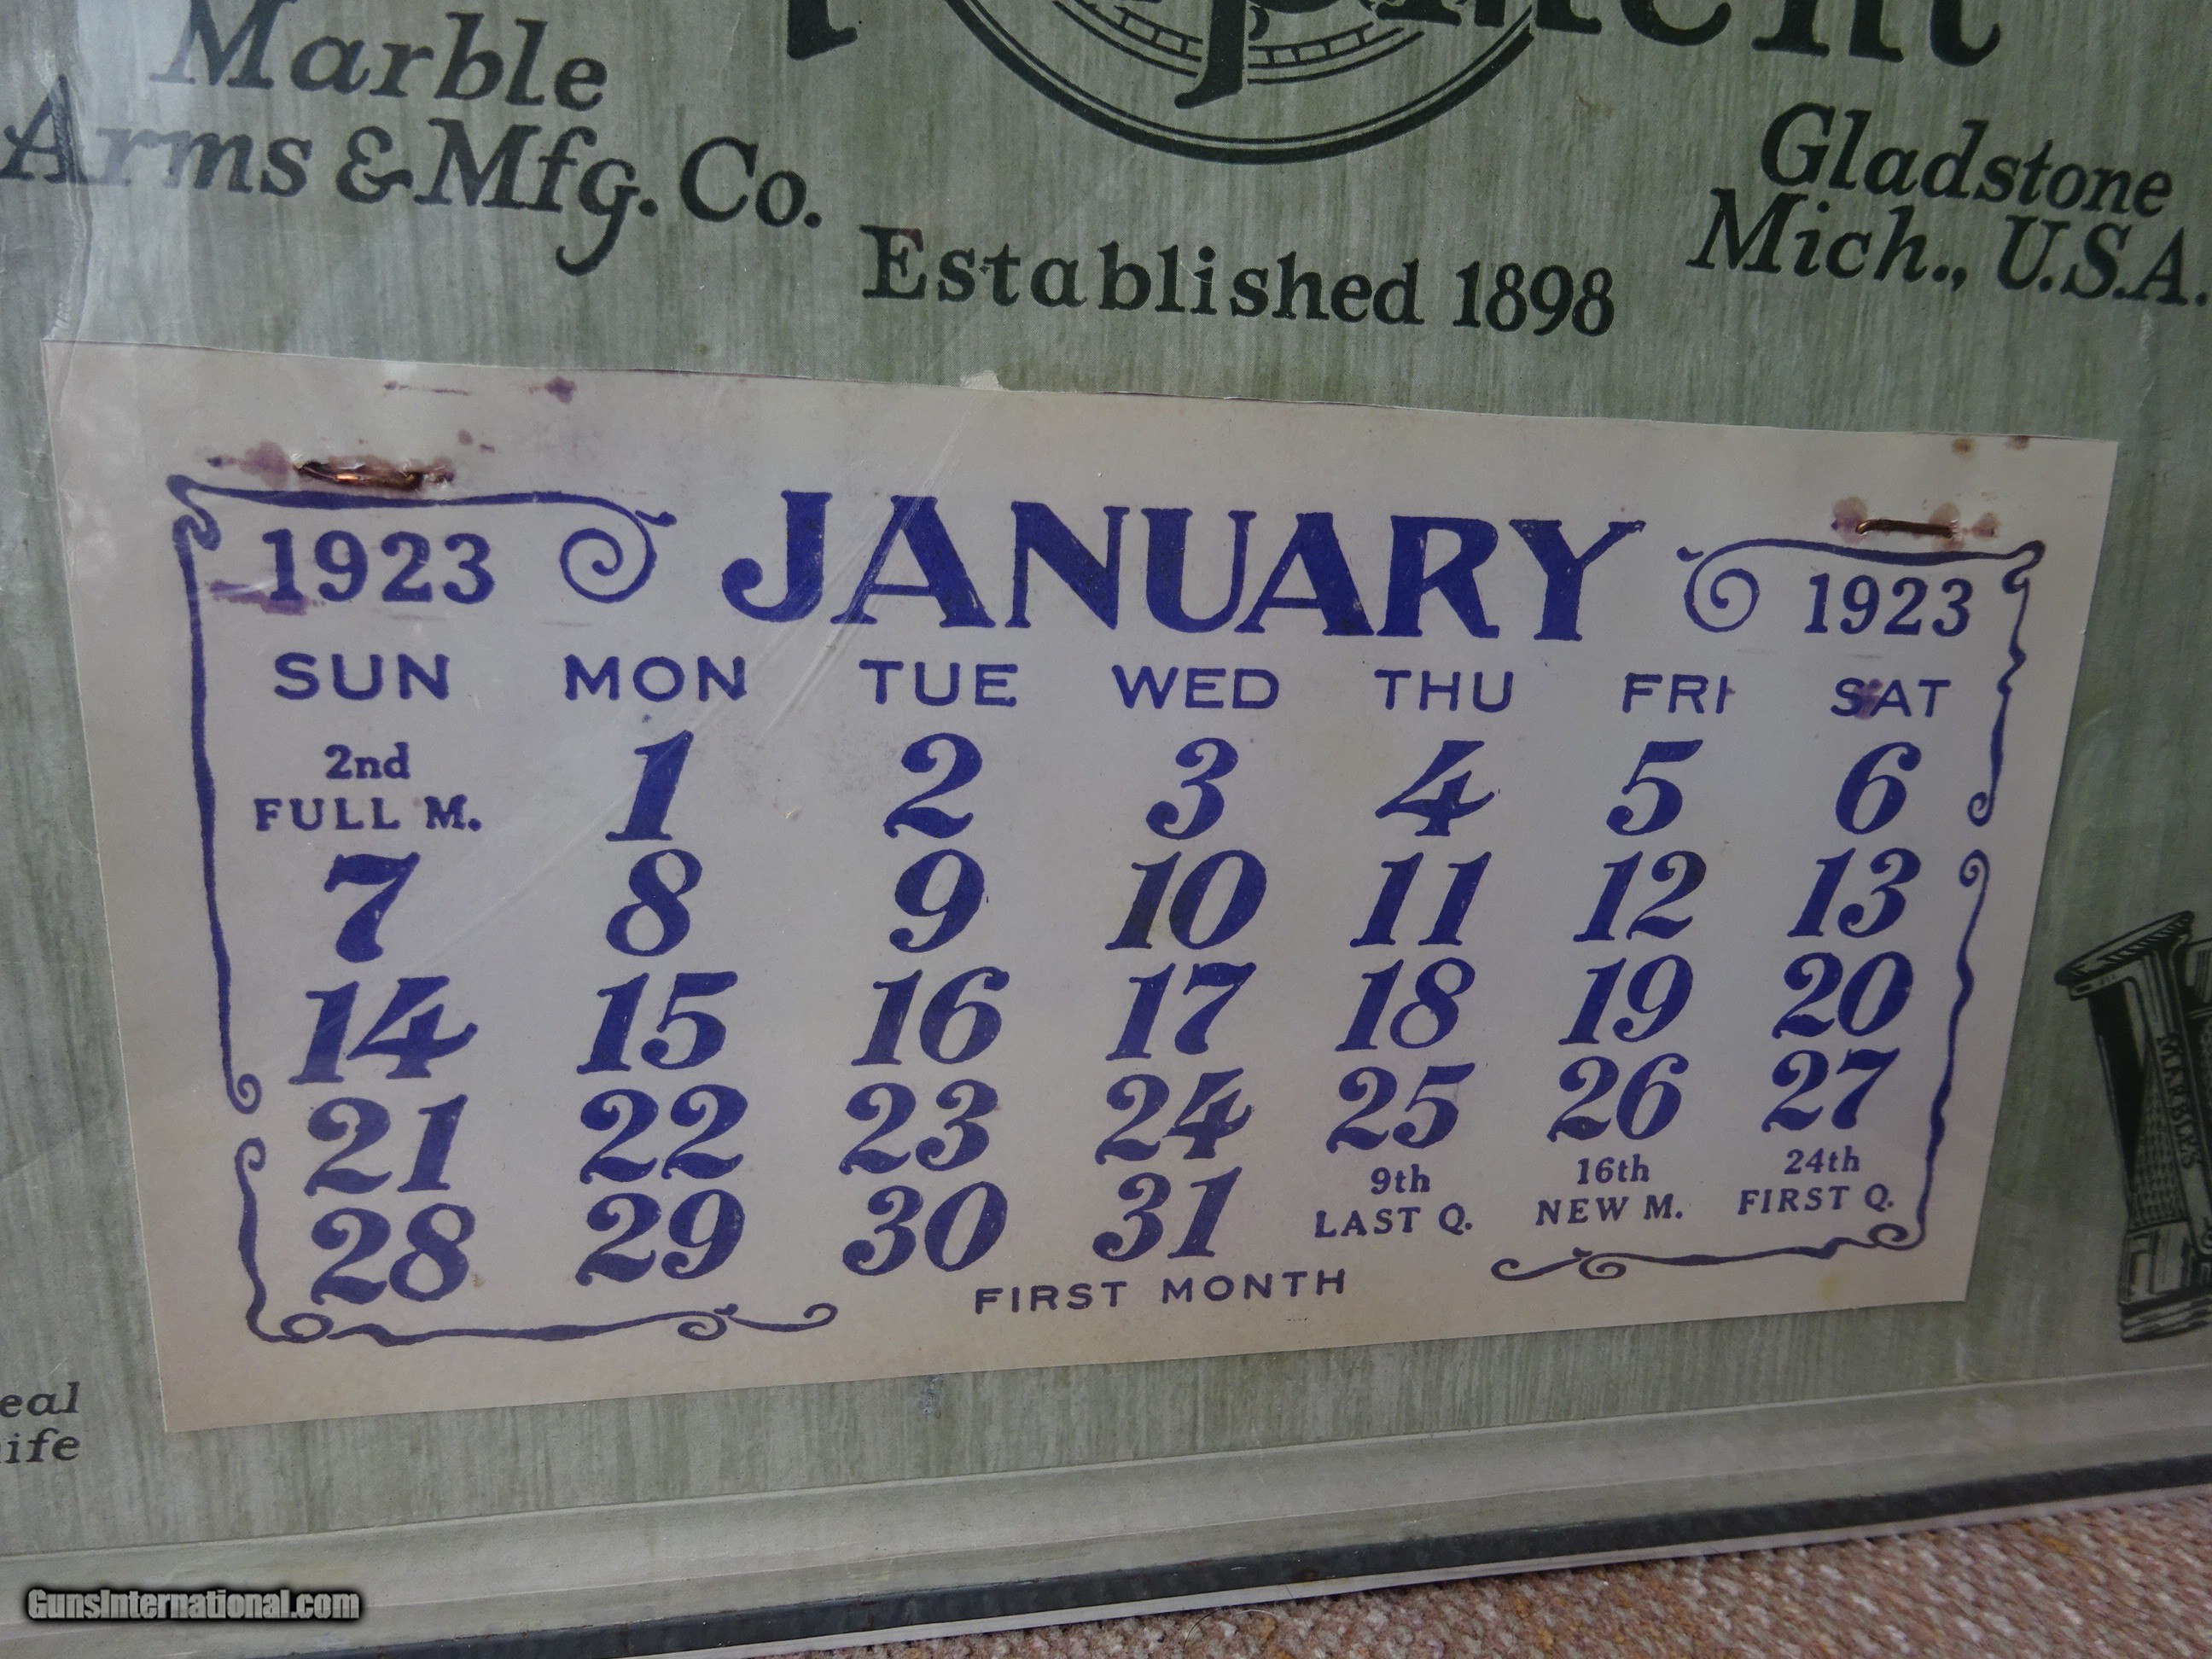 Marble
Arms & Mfg. Co.
Gladstone
Mich., U.S.A.
Established 1898
1923 JANUARY 1923
SUN MON TUE WED THU FRI SAT
2nd
FULL M.
1 2 3 4 5 6
7 8 9 10 11 12 13
14 15 16 17 18 19 20
21 22 23 24 25 26 27
28 29 30 31
9th
LAST Q.
16th
NEW M.
24th
FIRST Q.
FIRST MONTH
MARBLES
GunsInternational.com